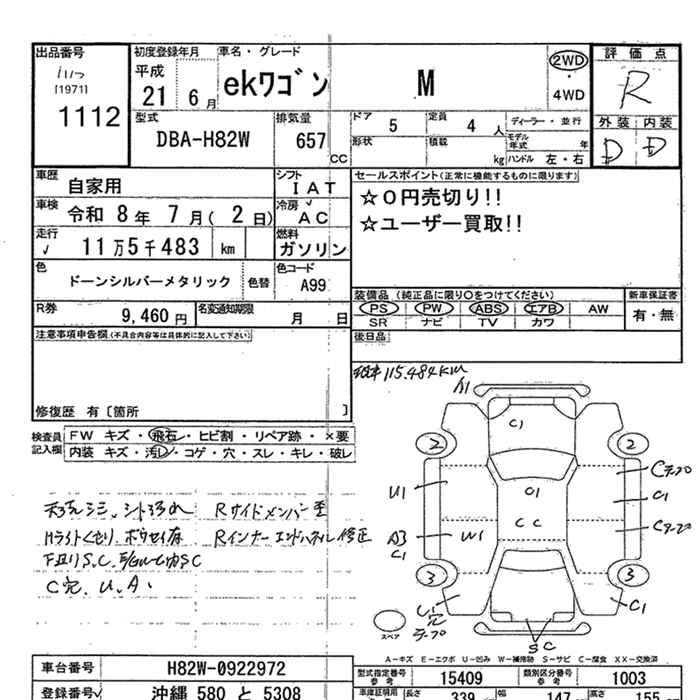 出品番号
[1971]
1112
初度登録年月
平成
21 6 月
車名・グレード
ekワゴン M
2WD
・
4WD
評価点
R
外装 内装
D D
型式
DBA-H82W
排気量
657 CC
ドア 5
定員 4 人
ディーラー・並行
形状
積載 kg
モデル年式 年
ハンドル 左・右
車歴 自家用
シフト I A T
セールスポイント(正常に機能するものに限ります)
☆0円売切り!!
☆ユーザー買取!!
車検 令和 8 年 7 月( 2 日)
冷房 A C
走行 11 万 5 千 483 km
燃料 ガソリン
色 ドーンシルバーメタリック
色替
色コード A99
装備品(純正品に限り○をつけてください)
新車保証書
PS PW ABS エアB AW
有・無
SR ナビ TV カワ
R券 9,460 円
名変通知期限 月 日
注意事項申告欄(不具合内容等は具体的に記入して下さい)
後日品
115.484KM
修復歴 有〔箇所 〕
検査員記入欄
FW キズ・飛石・ヒビ割・リペア跡・×要
内装 キズ・汚レ・コゲ・穴・スレ・キレ・破レ
天張シミ、シート汚れ Rサイドメンバー歪
Hライトくもり、ボウセイ有 Rインナーエンドパネル修正
C穴、U、A、
A1
C1
2 2
U1
C1
C C
W1
A3
C1
Cテープ
C1
Cテープ
3 3
U1
穴
テープ
C1
スペア
S C
A-キズ E-エクボ U-凹み W-補修跡 S-サビ C-腐食 XX-交換済
車台番号 H82W-0922972
型式指定番号 参考 15409
類別区分番号 参考 1003
登録番号 沖縄 580 と 5308
車庫証明用 長さ 339 幅 147 高さ 155